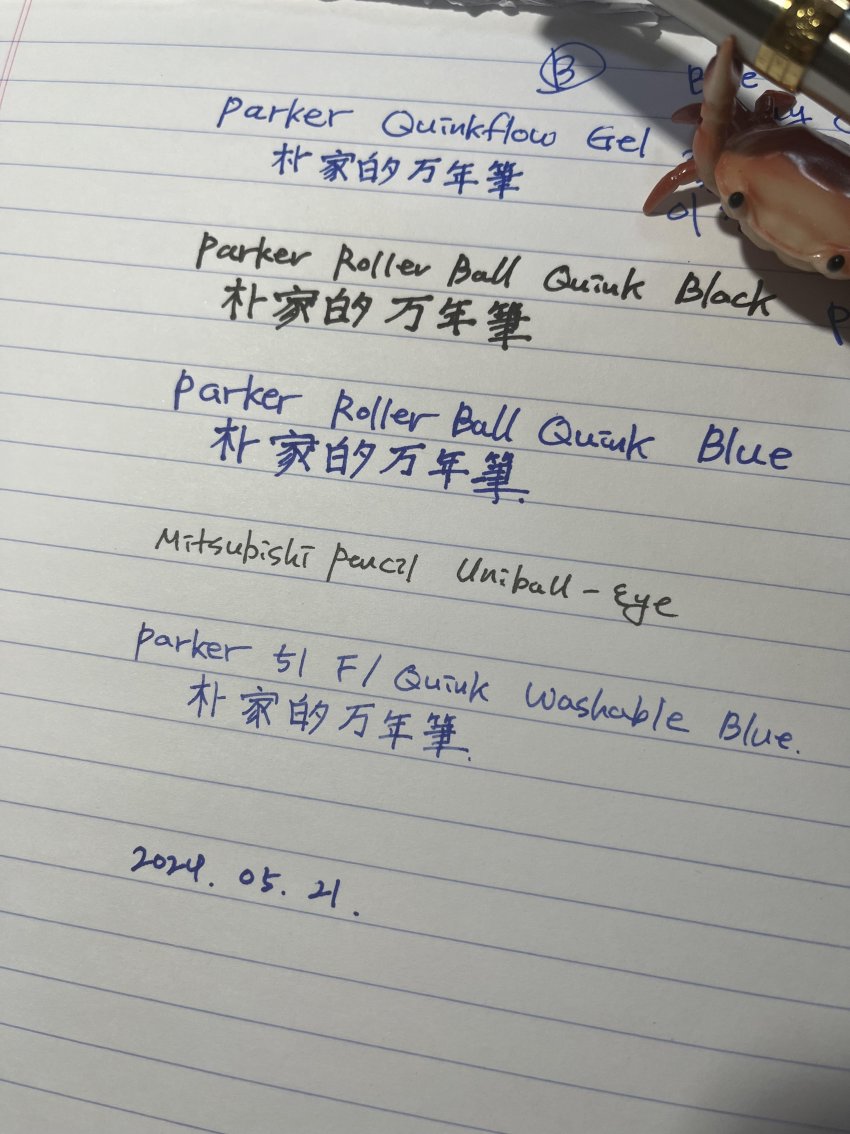 B
Parker Quinkflow Gel
朴家的万年筆
Parker Roller Ball Quink Black
朴家的万年筆
Parker Roller Ball Quink Blue
朴家的万年筆.
Mitsubishi pencil Uniball-Eye
parker 51 F/Quink Washable Blue.
朴家的万年筆.
2024. 05. 21.